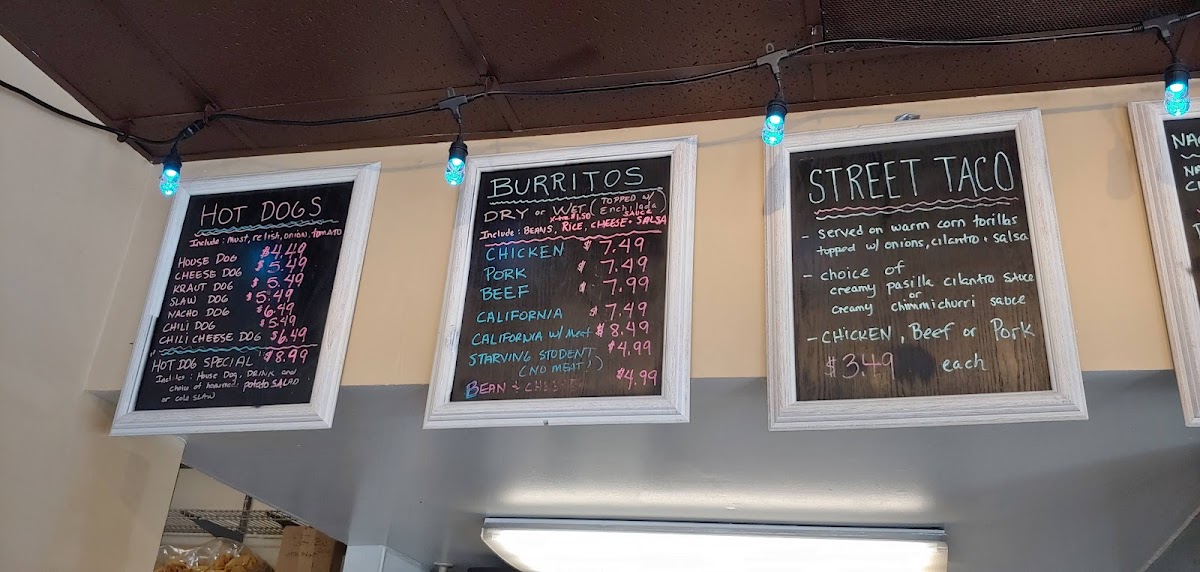 HOT DOGS
Include: Must, relish, onion, tomato
HOUSE DOG $4.49
CHEESE DOG $5.49
KRAUT DOG $5.49
SLAW DOG $5.49
NACHO DOG $6.49
CHILI DOG $5.49
CHILI CHEESE DOG $6.49
HOT DOG SPECIAL $8.99
Includes: House Dog, DRINK and
choice of homemade potato SALAD
or cole SLAW
BURRITOS
DRY or WET (TOPPED w/ Enchilada SAUCE)
X-tra $1.50
Include: BEANS, RICE, CHEESE + SALSA
CHICKEN $7.49
PORK $7.49
BEEF $7.99
CALIFORNIA $7.49
CALIFORNIA w/ Meat $8.49
STARVING STUDENT $4.99
(NO MEAT!)
BEAN + CHEESE $4.99
STREET TACO
- Served on warm corn torillas
topped w/ onions, cilantro + salsa
- choice of
creamy pasilla cilantro sauce
or
creamy chimmichurri sauce
- CHICKEN, Beef or Pork
$3.49 each
NA